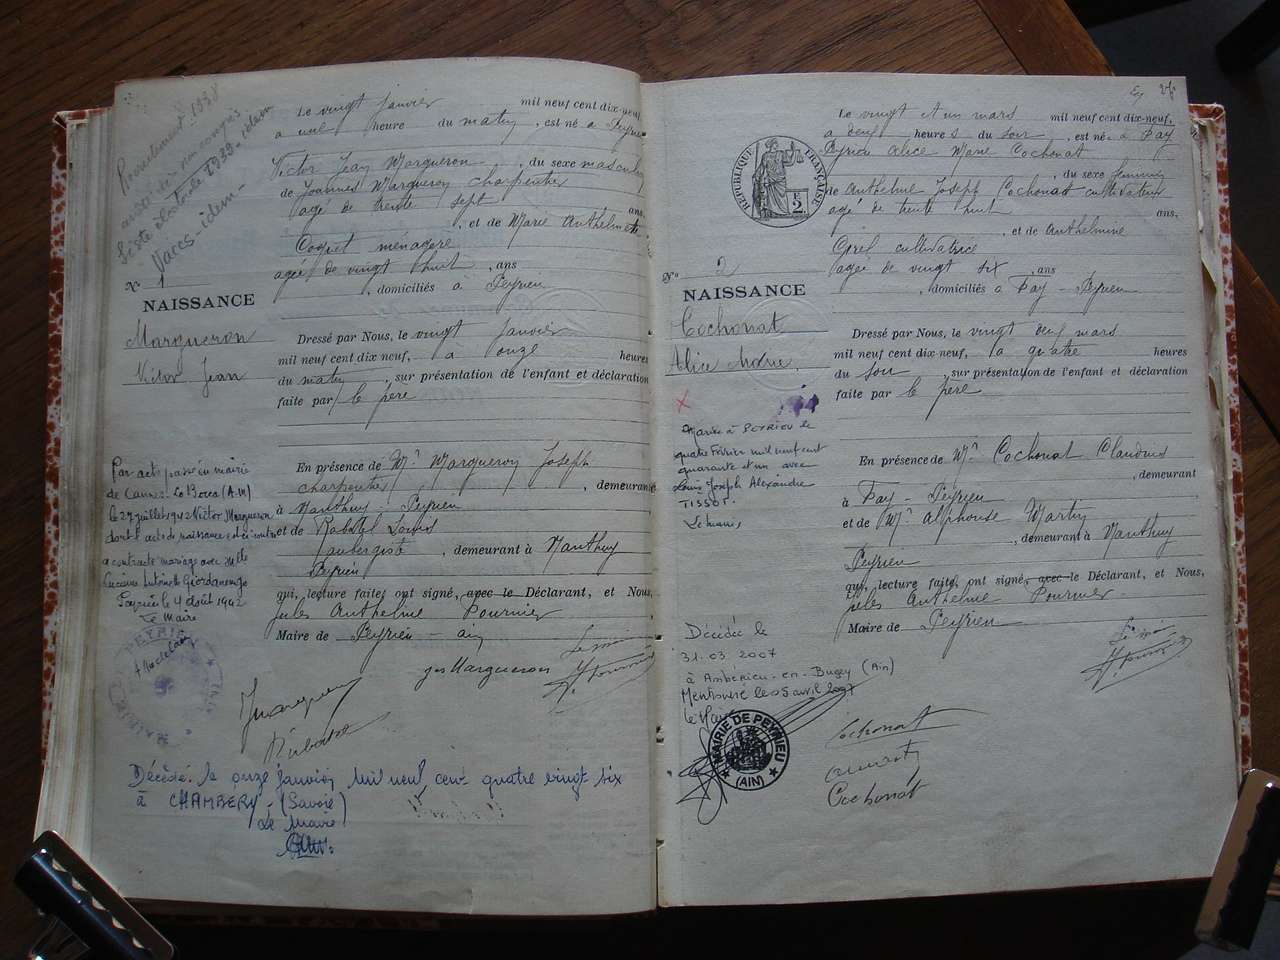 N° 1
NAISSANCE
Margueron
Victor Jean
Le vingt janvier mil neuf cent dix-neuf,
a une heure du matin, est né a Peyrieu
Victor Jean Margueron, du sexe masculin
de Joannes Margueron charpentier
agé de trente sept ans,
et de Marie Anthelmette
Coquet ménagère
agée de vingt huit, ans
, domiciliés à Peyrieu
Dressé par Nous, le vingt janvier
mil neuf cent dix neuf, a onze heures
du matin, sur présentation de l'enfant et déclaration
faite par le père
En présence de Mr Margueron Joseph
charpentier, demeurant
à Nanthuy - Peyrieu
et de Rabatel Louis
aubergiste, demeurant à Nanthuy
Peyrieu
qui, lecture faite, ont signé, avec le Déclarant, et Nous,
Jules Anthelme Pournier
Maire de Peyrieu - ain
Par acte passé en mairie
de Cannes - La Bocca (A.M)
le 27 juillet 1942 Victor Margueron
dont l'acte de naissance est ci-contre
a contracté mariage avec Melle
Antoinette Giordanengo
Peyrieu le 4 août 1942
Le Maire
Décédé le onze janvier mil neuf cent quatre vingt six
à CHAMBERY - (Savoie)
Le Maire
27
RÉPUBLIQUE FRANÇAISE
2
N° 2
NAISSANCE
Cochonat
Alice Marie
Le vingt et un mars mil neuf cent dix-neuf,
a deux heures du soir, est né a Fay
Peyrieu Alice Marie Cochonat
, du sexe féminin
de Anthelme Joseph Cochonat cultivateur
agé de trente huit ans,
et de Anthelmine
Cyrel cultivatrice
agée de vingt six, ans
, domiciliés a Fay - Peyrieu
Dressé par Nous, le vingt deux mars
mil neuf cent dix-neuf, a quatre heures
du soir, sur présentation de l'enfant et déclaration
faite par le père
En présence de Mr Cochonat Claudius
, demeurant
à Fay - Peyrieu
et de Mr Alphonse Martin
, demeurant à Nanthuy
Peyrieu
qui, lecture faite, ont signé, avec le Déclarant, et Nous,
Jules Anthelme Pournier
Maire de Peyrieu
Mariée à PEYRIEU le
quatre Février mil neuf cent
quarante et un avec
Louis Joseph Alexandre
TISSOT.
Le maire
Décédée le
31.03.2007
à Ambérieu-en-Bugey (Ain)
Mentionné le 5 avril 2007
Le Maire
MAIRIE DE PEYRIEU
(AIN)
Cochonat
Cochonat